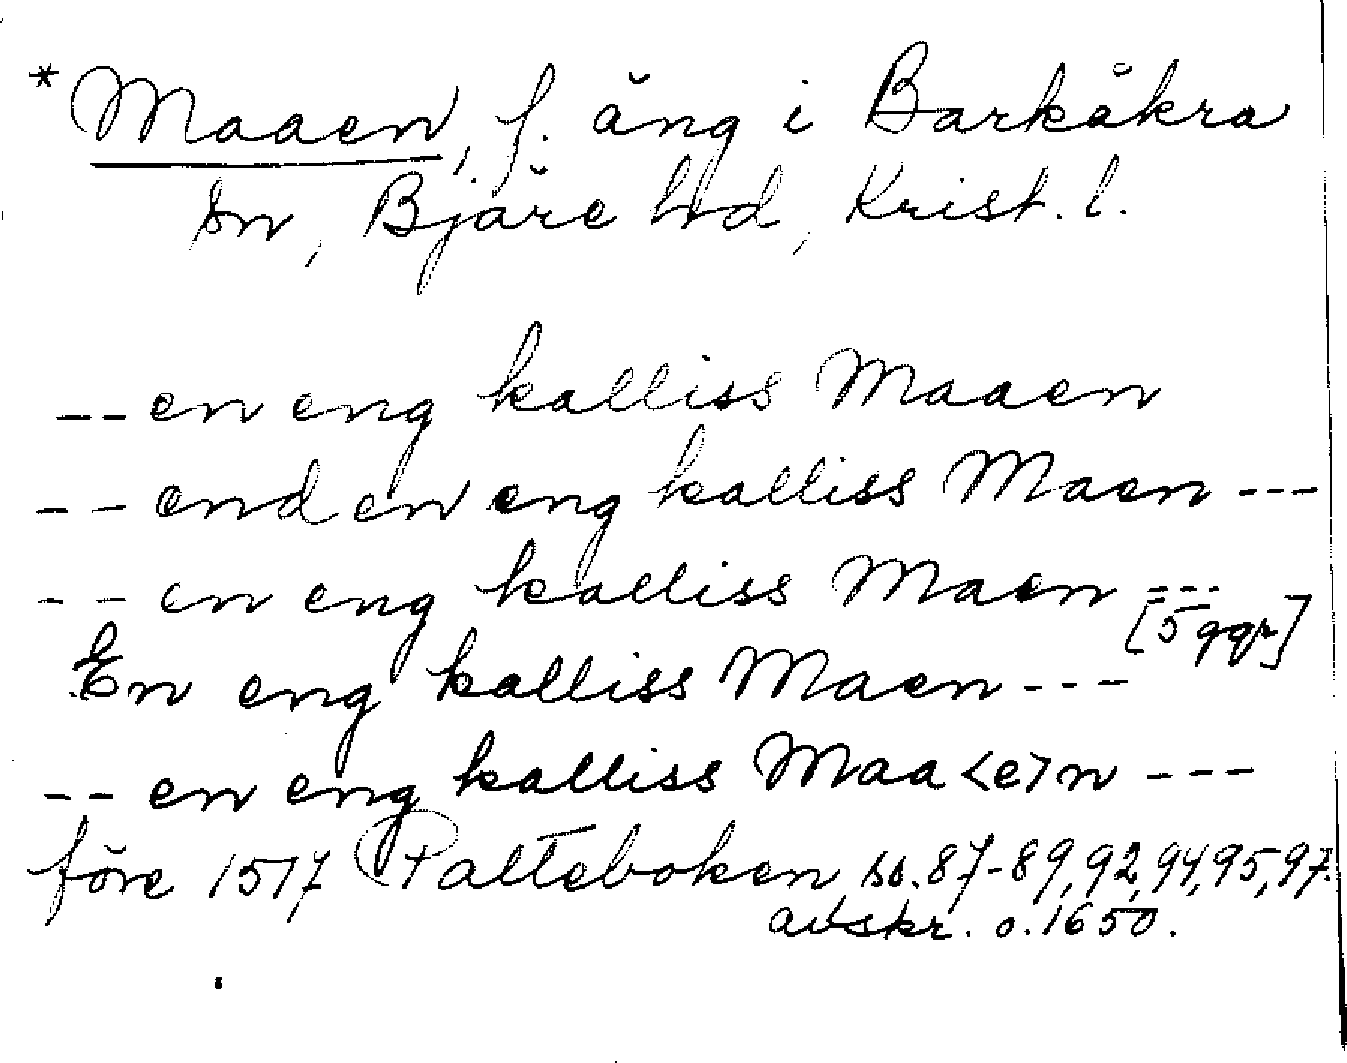 *Maaen, f. äng i Barkåkra
sn, Bjäre hd, Krist. l.
-- en eng kalliss Maaen
-- end en eng kalliss Maen ---
-- en eng kalliss Maen ---
[5 ggr]
En eng kalliss Maen ---
-- en eng kalliss Maa<e>n ---
före 1517 Palteboken ss. 87-89, 92, 94, 95, 97.
avskr. o. 1650.